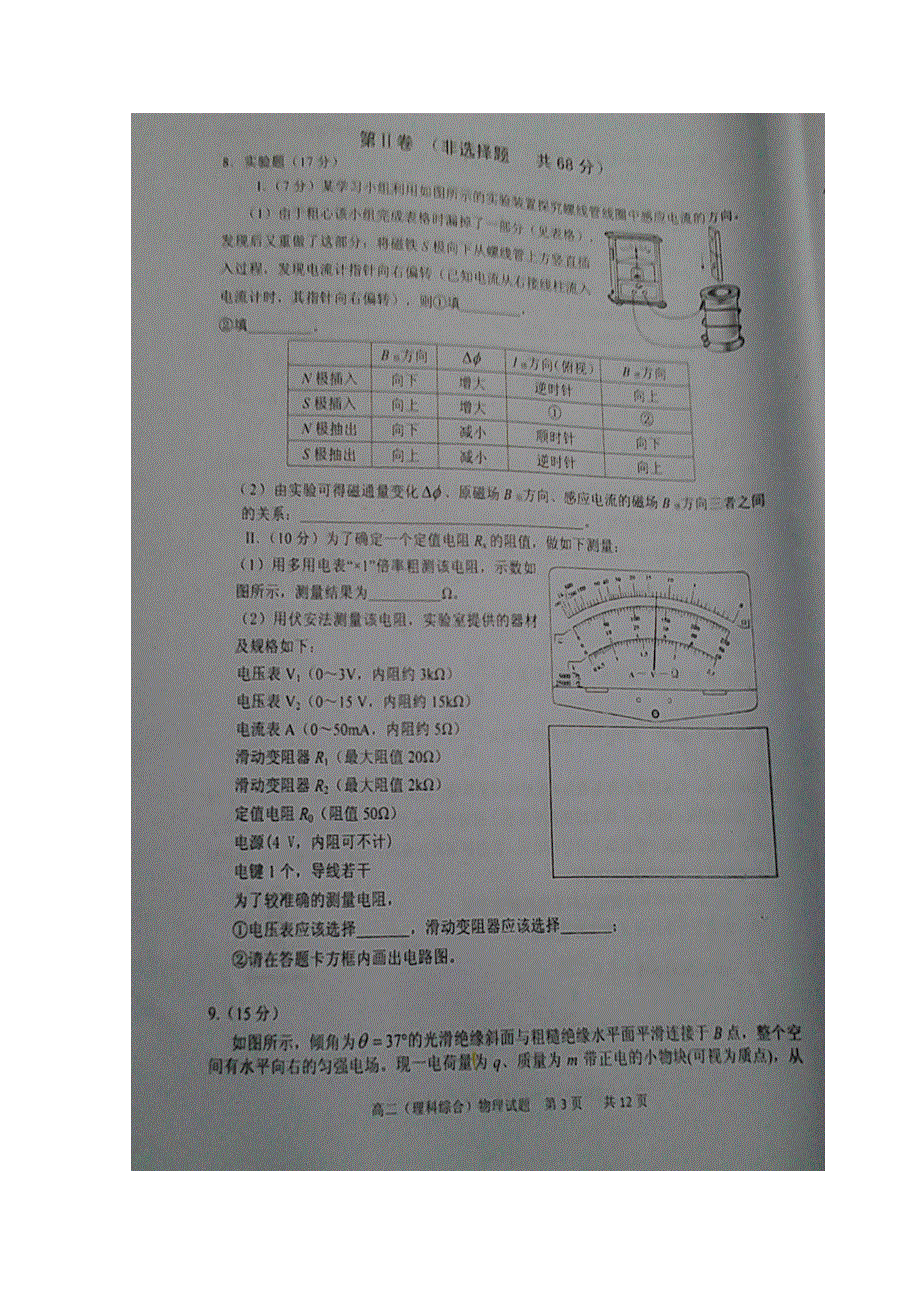 第II卷 (非选择题 共68分)
8. 实验题(17分)
I.(7分)某学习小组利用如图所示的实验装置探究螺线管线圈中感应电流的方向。
(1)由于粗心该小组完成表格时漏掉了一部分(见表格),
发现后又重做了这部分,将磁铁S极向下从螺线管上方竖直插
入过程,发现电流计指针向右偏转(已知电流从右接线柱流入
电流计时,其指针向右偏转),则①填________,
②填________。
B原方向 Δϕ I感方向(俯视) B感方向
N极插入 向下 增大 逆时针 向上
S极插入 向上 增大 ① ②
N极抽出 向下 减小 顺时针 向下
S极抽出 向上 减小 逆时针 向上
(2)由实验可得磁通量变化Δϕ、原磁场B原方向、感应电流的磁场B感方向三者之间
的关系:________________________。
II.(10分)为了确定一个定值电阻Rx的阻值,做如下测量:
(1)用多用电表“×1”倍率粗测该电阻,示数如
图所示,测量结果为________Ω。
A-V-Ω
(2)用伏安法测量该电阻,实验室提供的器材
及规格如下:
电压表V1(0~3V,内阻约3kΩ)
电压表V2(0~15 V,内阻约15kΩ)
电流表A(0~50mA,内阻约5Ω)
滑动变阻器R1(最大阻值20Ω)
滑动变阻器R2(最大阻值2kΩ)
定值电阻R0(阻值50Ω)
电源(4 V,内阻可不计)
电键1个,导线若干
为了较准确的测量电阻,
①电压表应该选择______,滑动变阻器应该选择______;
②请在答题卡方框内画出电路图。
9.(15分)
如图所示,倾角为θ=37°的光滑绝缘斜面与粗糙绝缘水平面平滑连接于B点,整个空
间有水平向右的匀强电场。现一电荷量为q、质量为m带正电的小物块(可视为质点),从
高二(理科综合)物理试题 第3页 共12页